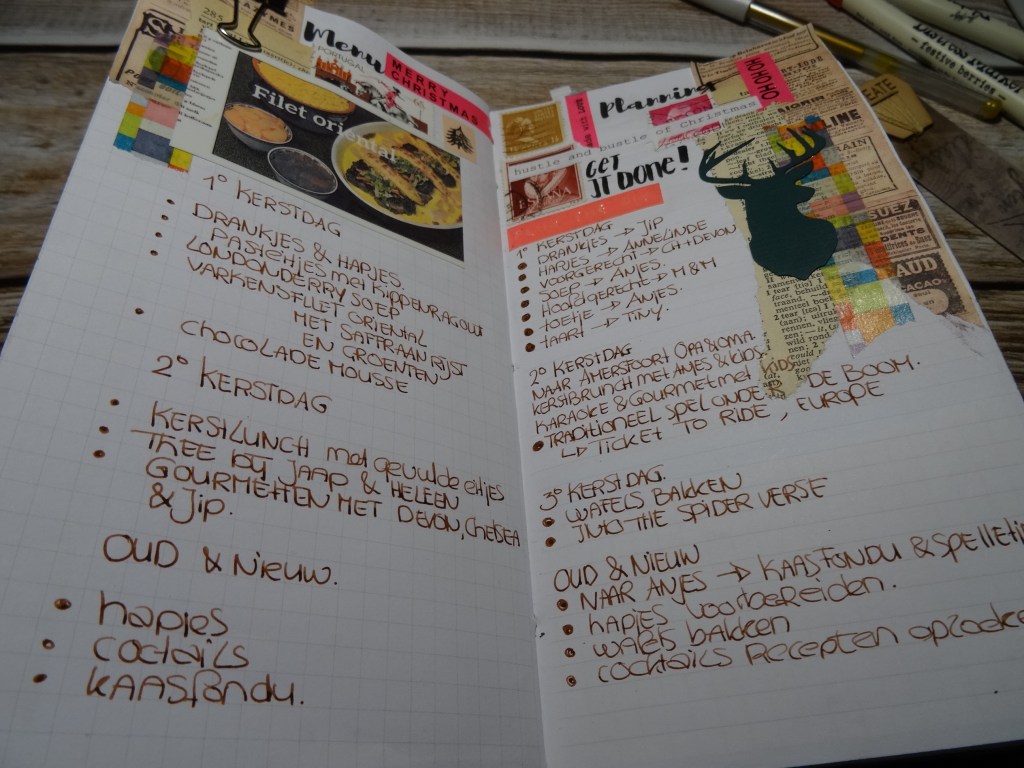 Menu
MERRY
CHRISTMAS
PORTUGAL
Filet ori
ntal
285
1° KERSTDAG
DRANKJES & HAPJES.
Pasteitjes met KippenRagout
LONDONDERRY SOEP
VARKENSFILET ORIENTAL
MET SAFFRAAN RIJST
EN GROENTEN
CHOCOLADE MOUSSE
2° KERSTDAG
KERSTLUNCH met gevulde eitjes
THEE bij JAAP & HELEEN
GOURMETTEN MET DEVON, CHELSEA
& Jip.
OUD & Nieuw.
hapjes
coctails
KAASfondu.
Planning
HO HO HO
hustle and bustle of Christmas
GET
IT DONE!
1° KERSTDAG
DRANKJES → JIP
HAPJES → ANNELINDE
VOORGERECHT → CH + DEVON
SOEP → ANJES.
HOOFDGERECHTE → M & M
toetje → ANJES.
taart → TINY.
2° KERSTDAG
NAAR AMERSFOORT OPA & OMA.
KERSTBRUNCH met ANJES & KIDS
KARAOKE & GOURMET met KIDS
TRADITIONEEL SPEL ONDER DE BOOM.
↳ TICKET TO RIDE, EUROPE
3° KERSTDAG.
WAFELS BAKKEN
INTO THE SPIDER VERSE
OUD & NIEUW
NAAR ANJES → KAASFONDU & SPELLETJ
HAPJES voorbereiden.
wafels bakken
cocktails Recepten opzoeke
LINE
SUEZ
AUD
CACAO
festive berries